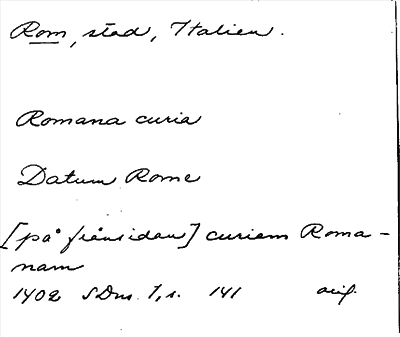 Rom, stad, Italien.
Romana curia
Datum Rome
[på frånsidan] curiam Roma-
nam
1402 SDns 1, s. 141 orig.